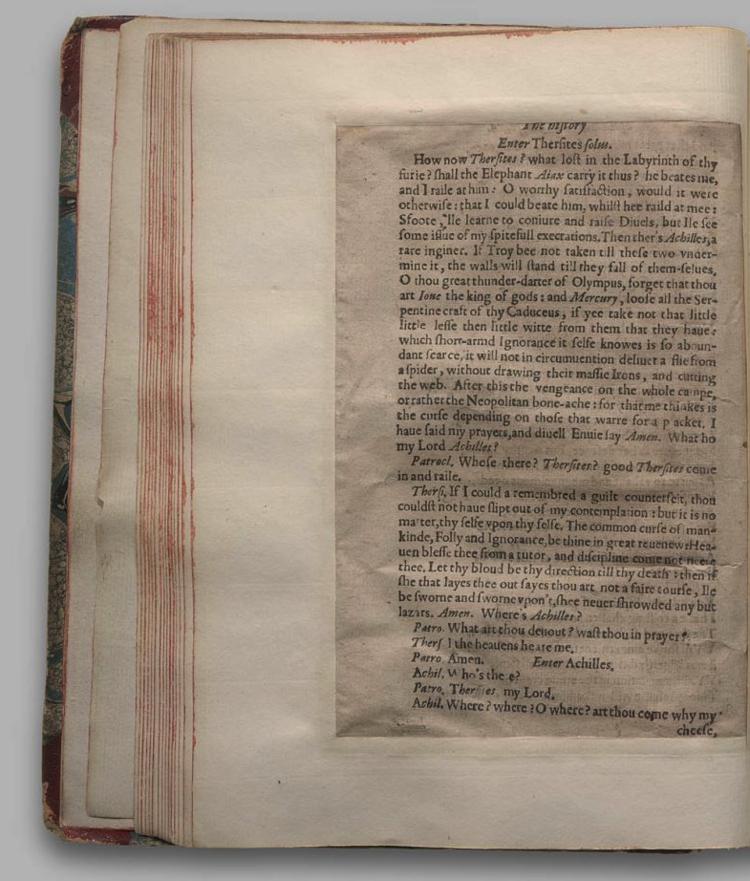 The history
Enter Thersites solus.
How now Thersites? what lost in the Labyrinth of thy
furie? shall the Elephant Aiax carry it thus? he beates me,
and I raile at him: O worthy satisfaction, would it were
otherwise: that I could beate him, whilst hee raild at mee:
Sfoote, Ile learne to coniure and raise Diuels, but Ile see
some issue of my spitefull execrations. Then ther's Achilles, a
rare inginer. If Troy bee not taken till these two vnder-
mine it, the walls will stand till they fall of them-selues,
O thou great thunder-darter of Olympus, forget that thou
art Ioue the king of gods: and Mercury, loose all the Ser-
pentine craft of thy Caduceus, if yee take not that little
little lesse then little witte from them that they haue:
which short-armd Ignorance it selfe knowes is so aboun-
dant scarce, it will not in circumuention deliuer a flie from
a spider, without drawing their massie Irons, and cutting
the web. After this the vengeance on the whole campe,
or rather the Neopolitan bone-ache: for that me thinkes is
the curse depending on those that warre for a placket. I
haue said my prayers, and diuell Enuie say Amen. What ho
my Lord Achilles?
Patrocl. Whose there? Thersites? good Thersites come
in and raile.
Thersi. If I could a remembred a guilt counterfeit, thou
couldst not haue slipt out of my contemplation: but it is no
matter, thy selfe vpon thy selfe. The common curse of man-
kinde, Folly and Ignorance, be thine in great reuenew: Hea-
uen blesse thee from a tutor, and discipline come not neere
thee. Let thy bloud be thy direction till thy death: then if
she that layes thee out sayes thou art not a faire course, Ile
be sworne and sworne vpon't, shee neuer shrowded any but
lazars. Amen. Where's Achilles?
Patro. What art thou deuout? wast thou in prayer?
Thers I the heauens heare me.
Patro Amen. Enter Achilles.
Achil. Who's there?
Patro. Thersites, my Lord.
Achil. Where? where? O where? art thou come why my
cheese,